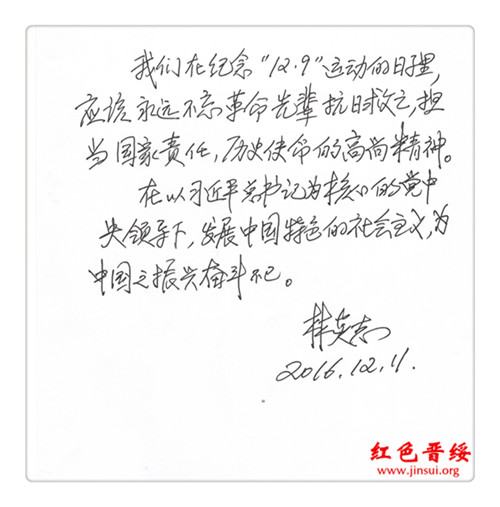 我们在纪念“12.9”运动的日子里,
应该永远不忘革命先辈抗日救亡,担
当国家责任,历史使命的高尚精神。
在以习近平总书记为核心的党中
央领导下,发展中国特色的社会主义,为
中国之振兴奋斗不已。
林炎志
2016.12.11.
红色晋绥
www.jinsui.org